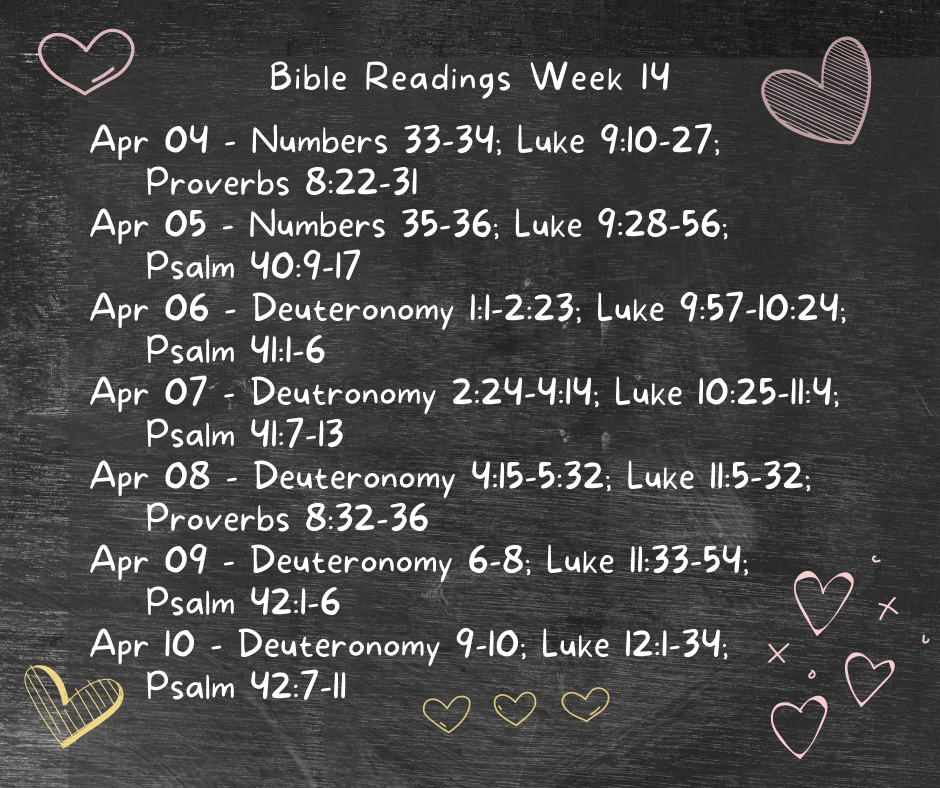 Bible Readings Week 14
Apr 04 - Numbers 33-34; Luke 9:10-27;
Proverbs 8:22-31
Apr 05 - Numbers 35-36; Luke 9:28-56;
Psalm 40:9-17
Apr 06 - Deuteronomy 1:1-2:23; Luke 9:57-10:24;
Psalm 41:1-6
Apr 07 - Deutronomy 2:24-4:14; Luke 10:25-11:4;
Psalm 41:7-13
Apr 08 - Deuteronomy 4:15-5:32; Luke 11:5-32;
Proverbs 8:32-36
Apr 09 - Deuteronomy 6-8; Luke 11:33-54;
Psalm 42:1-6
Apr 10 - Deuteronomy 9-10; Luke 12:1-34;
Psalm 42:7-11